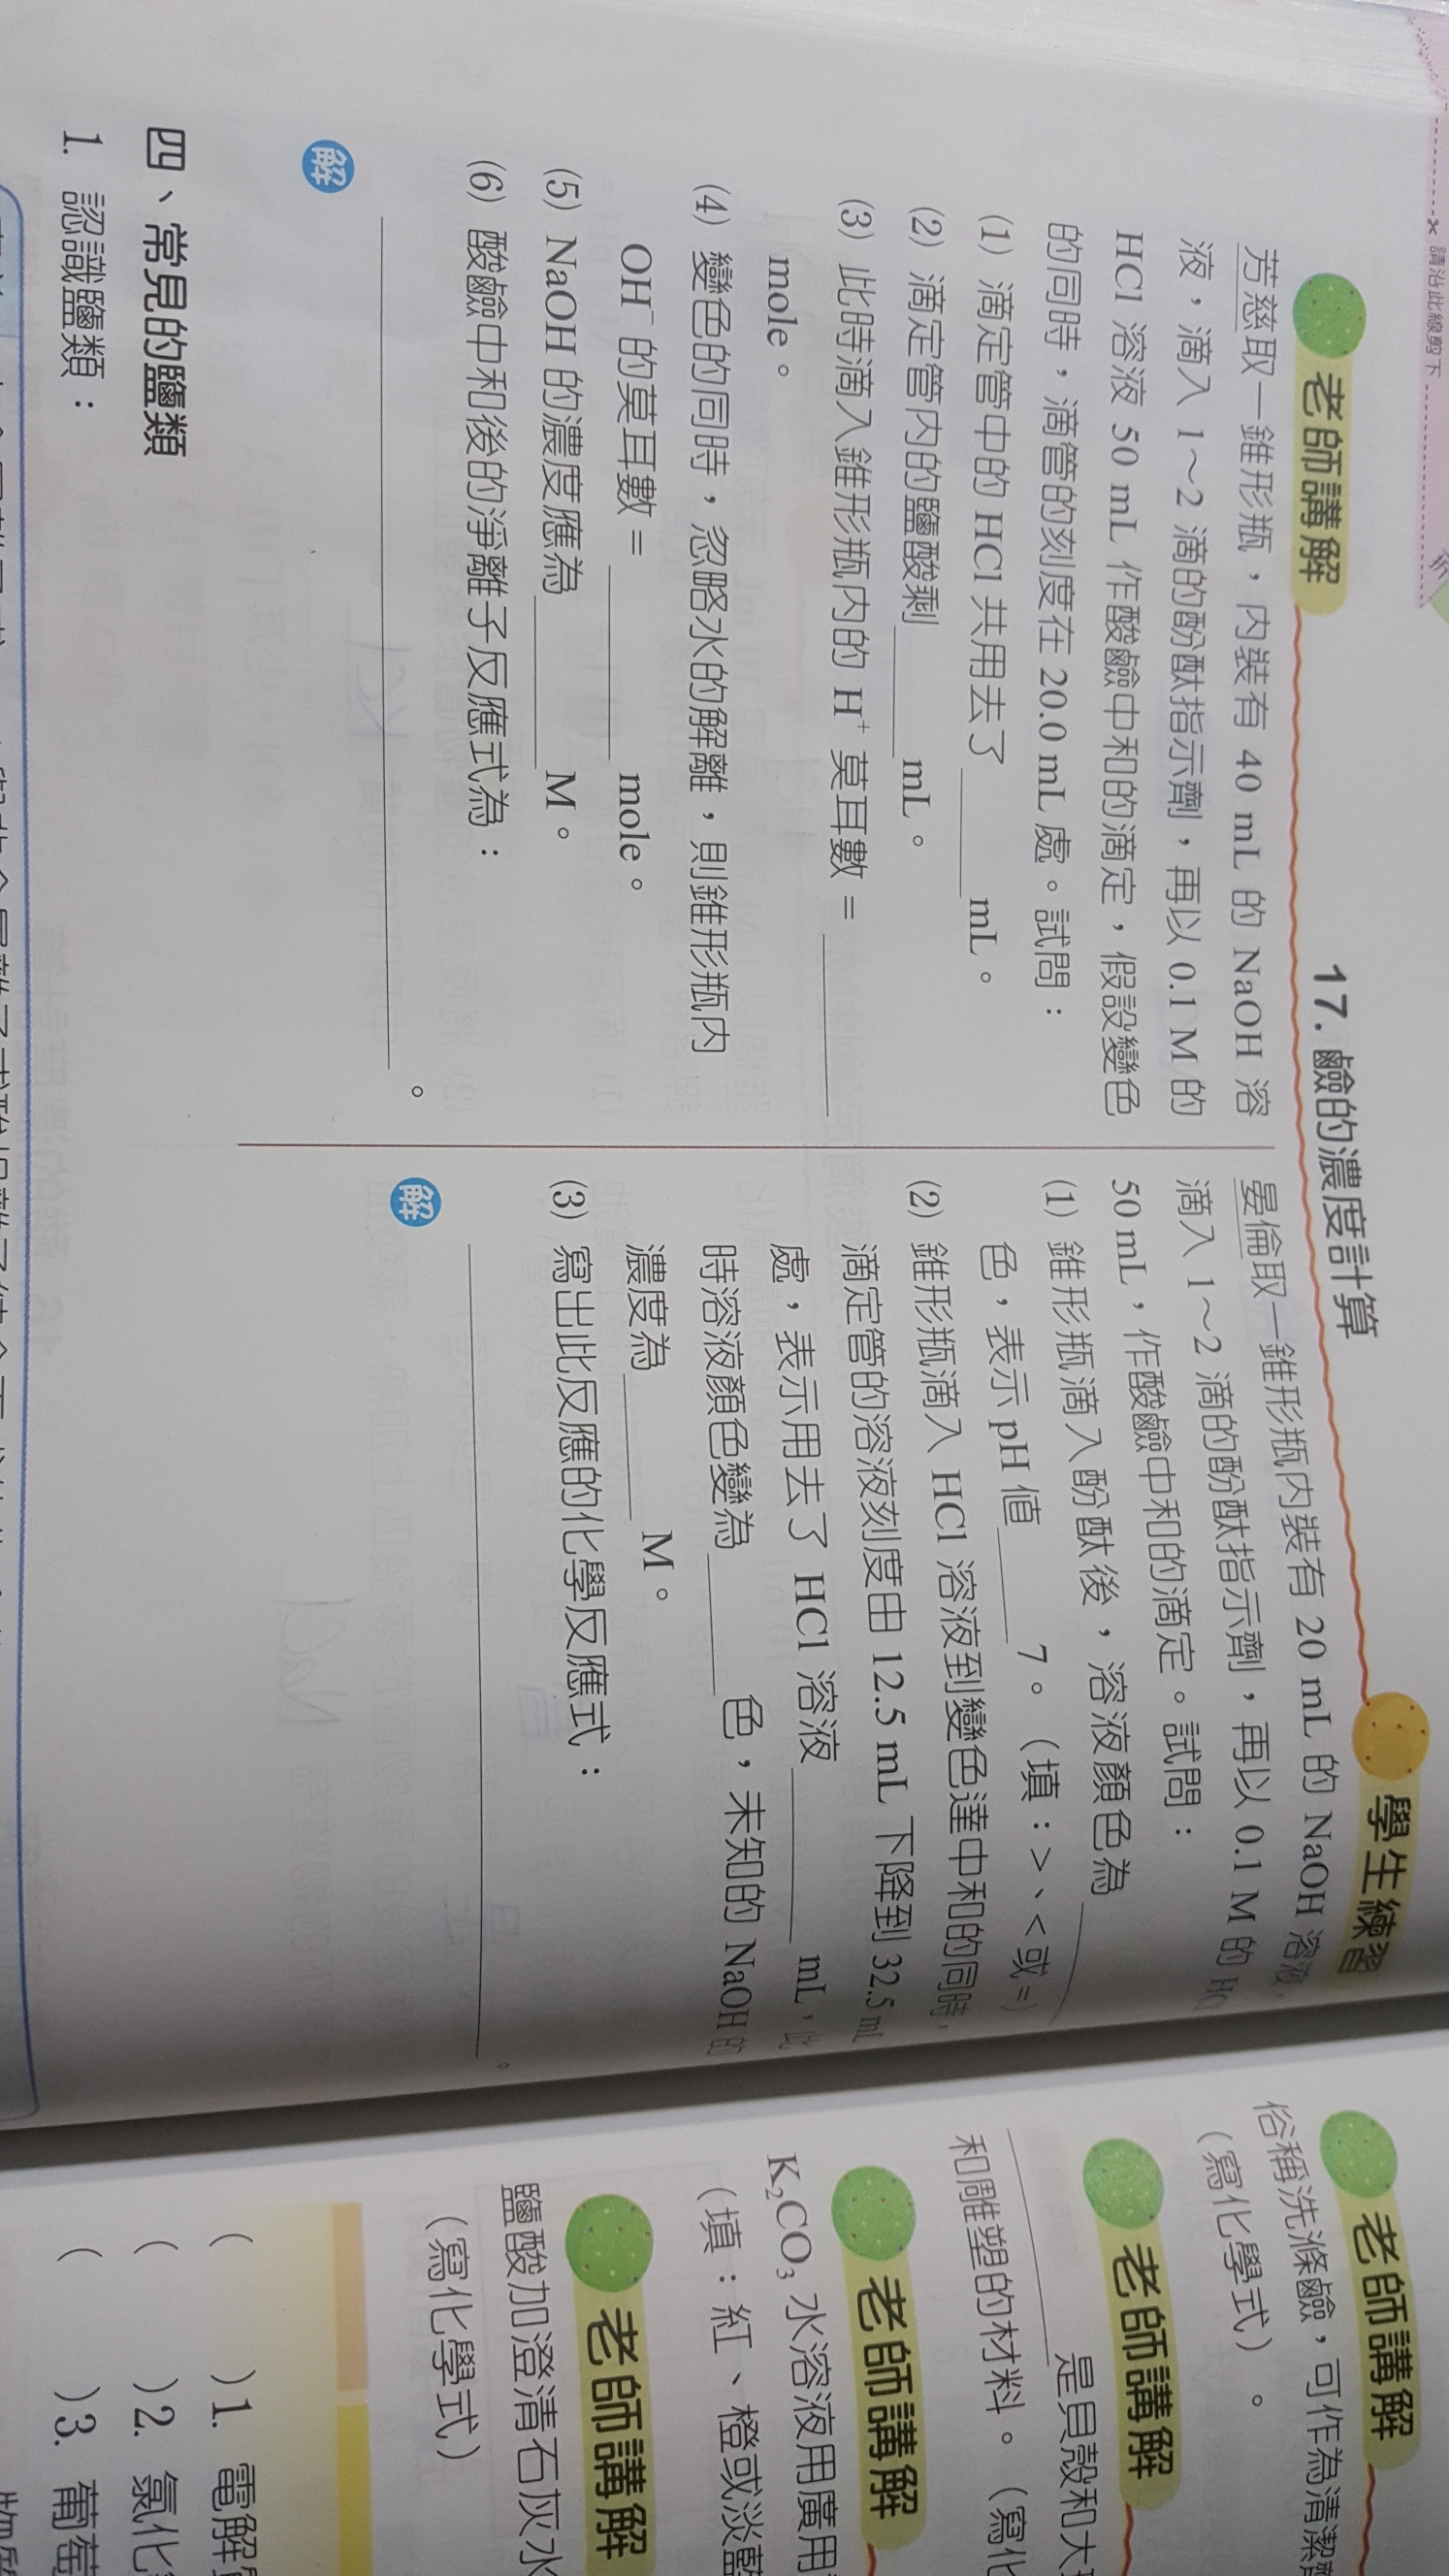 請沿此線剪下
17. 鹼的濃度計算
老師講解
芳慈取一錐形瓶，內裝有 40 mL 的 NaOH 溶
液，滴入 1～2 滴的酚酞指示劑，再以 0.1 M 的
HCl 溶液 50 mL 作酸鹼中和的滴定，假設變色
的同時，滴管的刻度在 20.0 mL 處。試問：
(1) 滴定管中的 HCl 共用去了＿＿＿＿mL。
(2) 滴定管內的鹽酸剩＿＿＿＿mL。
(3) 此時滴入錐形瓶內的 H⁺ 莫耳數 =＿＿＿＿
mole。
(4) 變色的同時，忽略水的解離，則錐形瓶內
OH⁻ 的莫耳數 =＿＿＿＿mole。
(5) NaOH 的濃度應為＿＿＿＿M。
(6) 酸鹼中和後的淨離子反應式為：
＿＿＿＿＿＿＿＿。
解
學生練習
晏倫取一錐形瓶內裝有 20 mL 的 NaOH 溶液，
滴入 1～2 滴的酚酞指示劑，再以 0.1 M 的 HCl
50 mL，作酸鹼中和的滴定。試問：
(1) 錐形瓶滴入酚酞後，溶液顏色為＿＿＿＿
色，表示 pH 值＿＿＿＿7。（填：>、<或=）
(2) 錐形瓶滴入 HCl 溶液到變色達中和的同時，
滴定管的溶液刻度由 12.5 mL 下降到 32.5 mL
處，表示用去了 HCl 溶液＿＿＿＿mL，此
時溶液顏色變為＿＿＿＿色，未知的 NaOH 的
濃度為＿＿＿＿M。
(3) 寫出此反應的化學反應式：
＿＿＿＿＿＿＿＿。
解
四、常見的鹽類
1. 認識鹽類：
老師講解
俗稱洗滌鹼，可作為清潔
（寫化學式）。
老師講解
＿＿＿＿是貝殼和大
和雕塑的材料。（寫化
老師講解
K₂CO₃ 水溶液用廣用
（填：紅、橙或淡藍
老師講解
鹽酸加澄清石灰水
（寫化學式）
(　　)1. 電解
(　　)2. 氯化
(　　)3. 葡萄